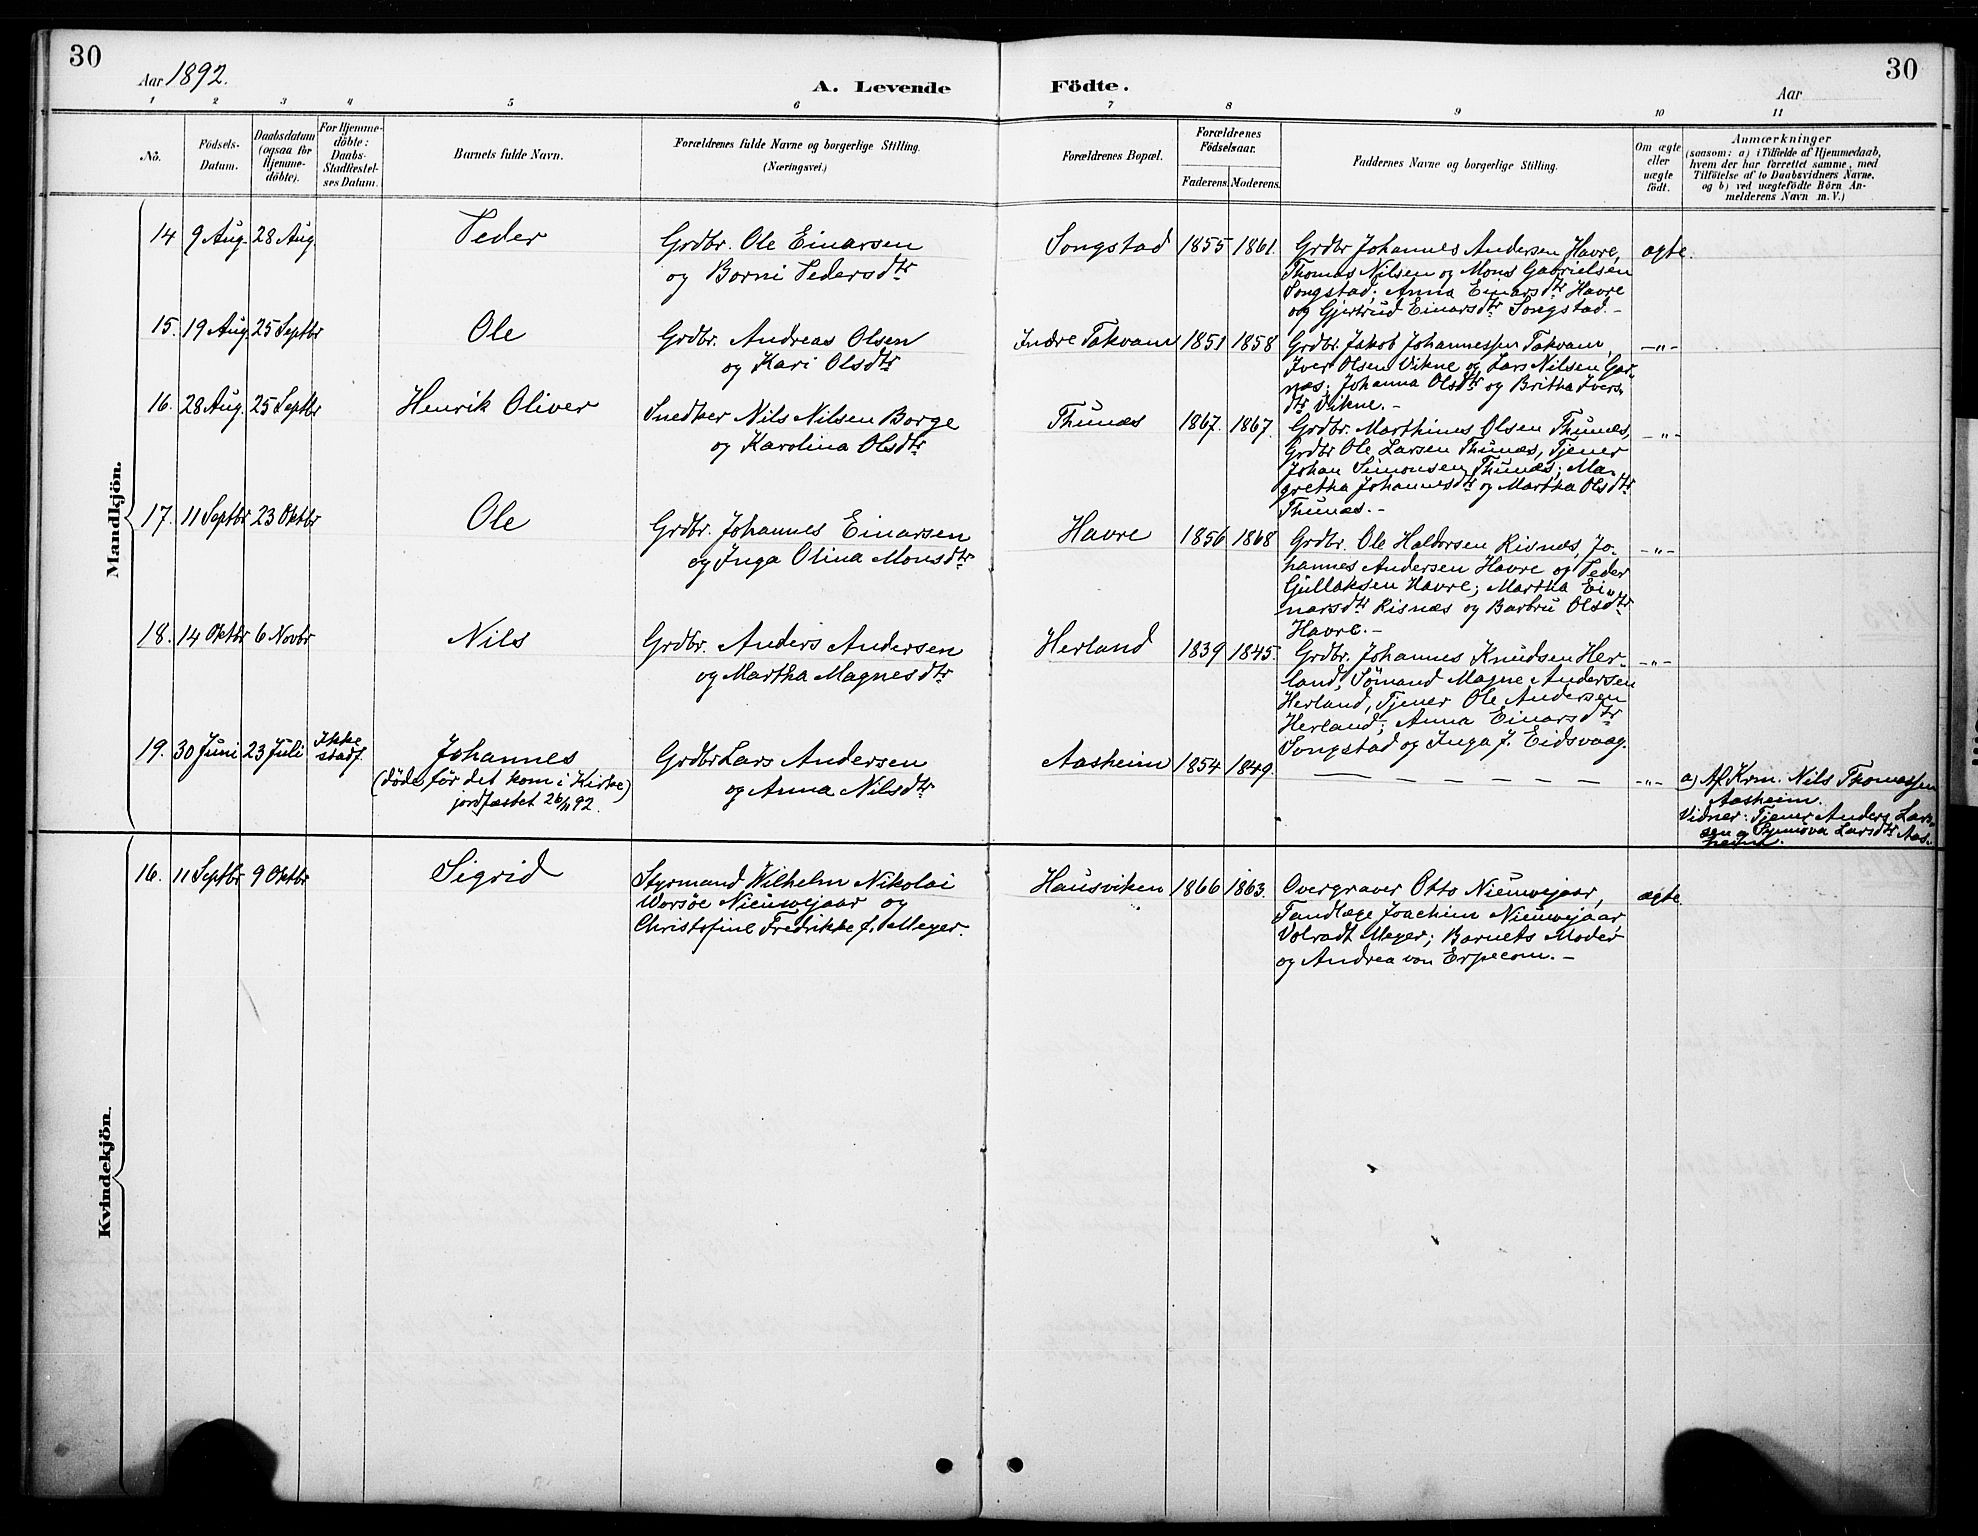 30
Aar 1892.
A. Levende Födte.
Aar
30
1 2 3 4 5 6 7 8 9 10 11
No.
Födsels-
Datum.
Daabsdatum
(ogsaa for
Hjemme-
döbte).
For Hjemme-
döbte:
Daabs-
Stadfæstel-
ses Datum.
Barnets fulde Navn.
Forældrenes fulde Navne og borgerlige Stilling.
(Næringsvei.)
Forældrenes Bopæl.
Forældrenes
Födselsaar.
Faderens. Moderens.
Faddernes Navne og borgerlige Stilling.
Om ægte
eller
uægte
födt.
Anmærkninger
(saasom: a) i Tilfælde af Hjemmedaab,
hvem der har forrettet samme, med
Tilföielse af to Daabsvidners Navne,
og b) ved uægtefödte Börn An-
melderens Navn m. V.)
Mandkjön.
14 9 Aug. 28 Aug.
Peder
Grdbr. Ole Einarsen
og Borni Pedersdtr
Songstad 1855 1861.
Grdbr Johannes Andersen Havre,
Thomas Nilsen og Mons Gabrielsen
Songstad; Anna Einarsdtr Havre
og Gjertrud Einarsdtr Songstad.-
ægte.
15. 19 Aug. 25 Septbr
Ole
Grdbr. Andreas Olsen
og Kari Olsdtr
Indre Takvam 1851 1858
Grdbr. Jakob Johannessen Takvam,
Iver Olsen Vikne og Lars Nilsen Gar-
næs; Johanna Olsdtr og Britha Ivers-
dtr Vikne.-
-"-
16. 28 Aug. 25 Septbr
Henrik Oliver
Snedker Nils Nilsen Borge
og Karolina Olsdtr
Thunæs 1867. 1867.
Grdbr. Marthines Olsen Thunæs,
Grdbr Ole Larsen Thunæs, Tjener
Johan Simonsen Thunæs; Ma-
gretha Johannesdtr og Martha Olsdtr
Thunæs.-
-"-
17. 11 Septbr 23 Oktbr
Ole
Grdbr. Johannes Einarsen
og Inga Olina Monsdtr
Havre 1856 1868
Grdbr. Ole Haldorsen Risnæs, Jo-
hannes Andersen Havre og Peder
Gjullaksen Havre; Martha Ei-
narsdtr Risnæs og Barbru Olsdtr
Havre.-
-"-
18. 14 Oktbr 6 Novbr
Nils
Grdbr. Anders Andersen
og Martha Magnesdtr
Herland 1839 1845.
Grdbr. Johannes Knudsen Her-
land, Sømand Magne Andersen
Herland, Tjener Ole Andersen
Herland; Anna Einarsdtr
Songstad og Inga J. Eidsvaag.
-"-
19. 30 Juni 23 Juli Ikke
stadf.
Johannes
(døde før det kom i Kirke)
jordfæstet 26/11 92.
Grdbr Lars Andersen
og Anna Nilsdtr
Aasheim 1854 1849.
— — — — — — —
-"-
a) Af Krm. Nils Thomassen
Aasheim.
Vidner: Tjener Anders Lar-
sen og Synnøva Larsdtr Aas-
heim.
Kvindekjön.
16. 11 Septbr 9 Oktbr
Sigrid
Styrmand Wilhelm Nikolai
Worsøe Nieuwejaar og
Christofine Fredrikke f. Meyer.
Hausviken 1866 1863.
Overgraver Otto Nieuwejaar,
Tandlæge Joachim Nieuwejaar
Volradt Meyer; Barnets Moder
og Andrea von Erpecom.-
ægte.